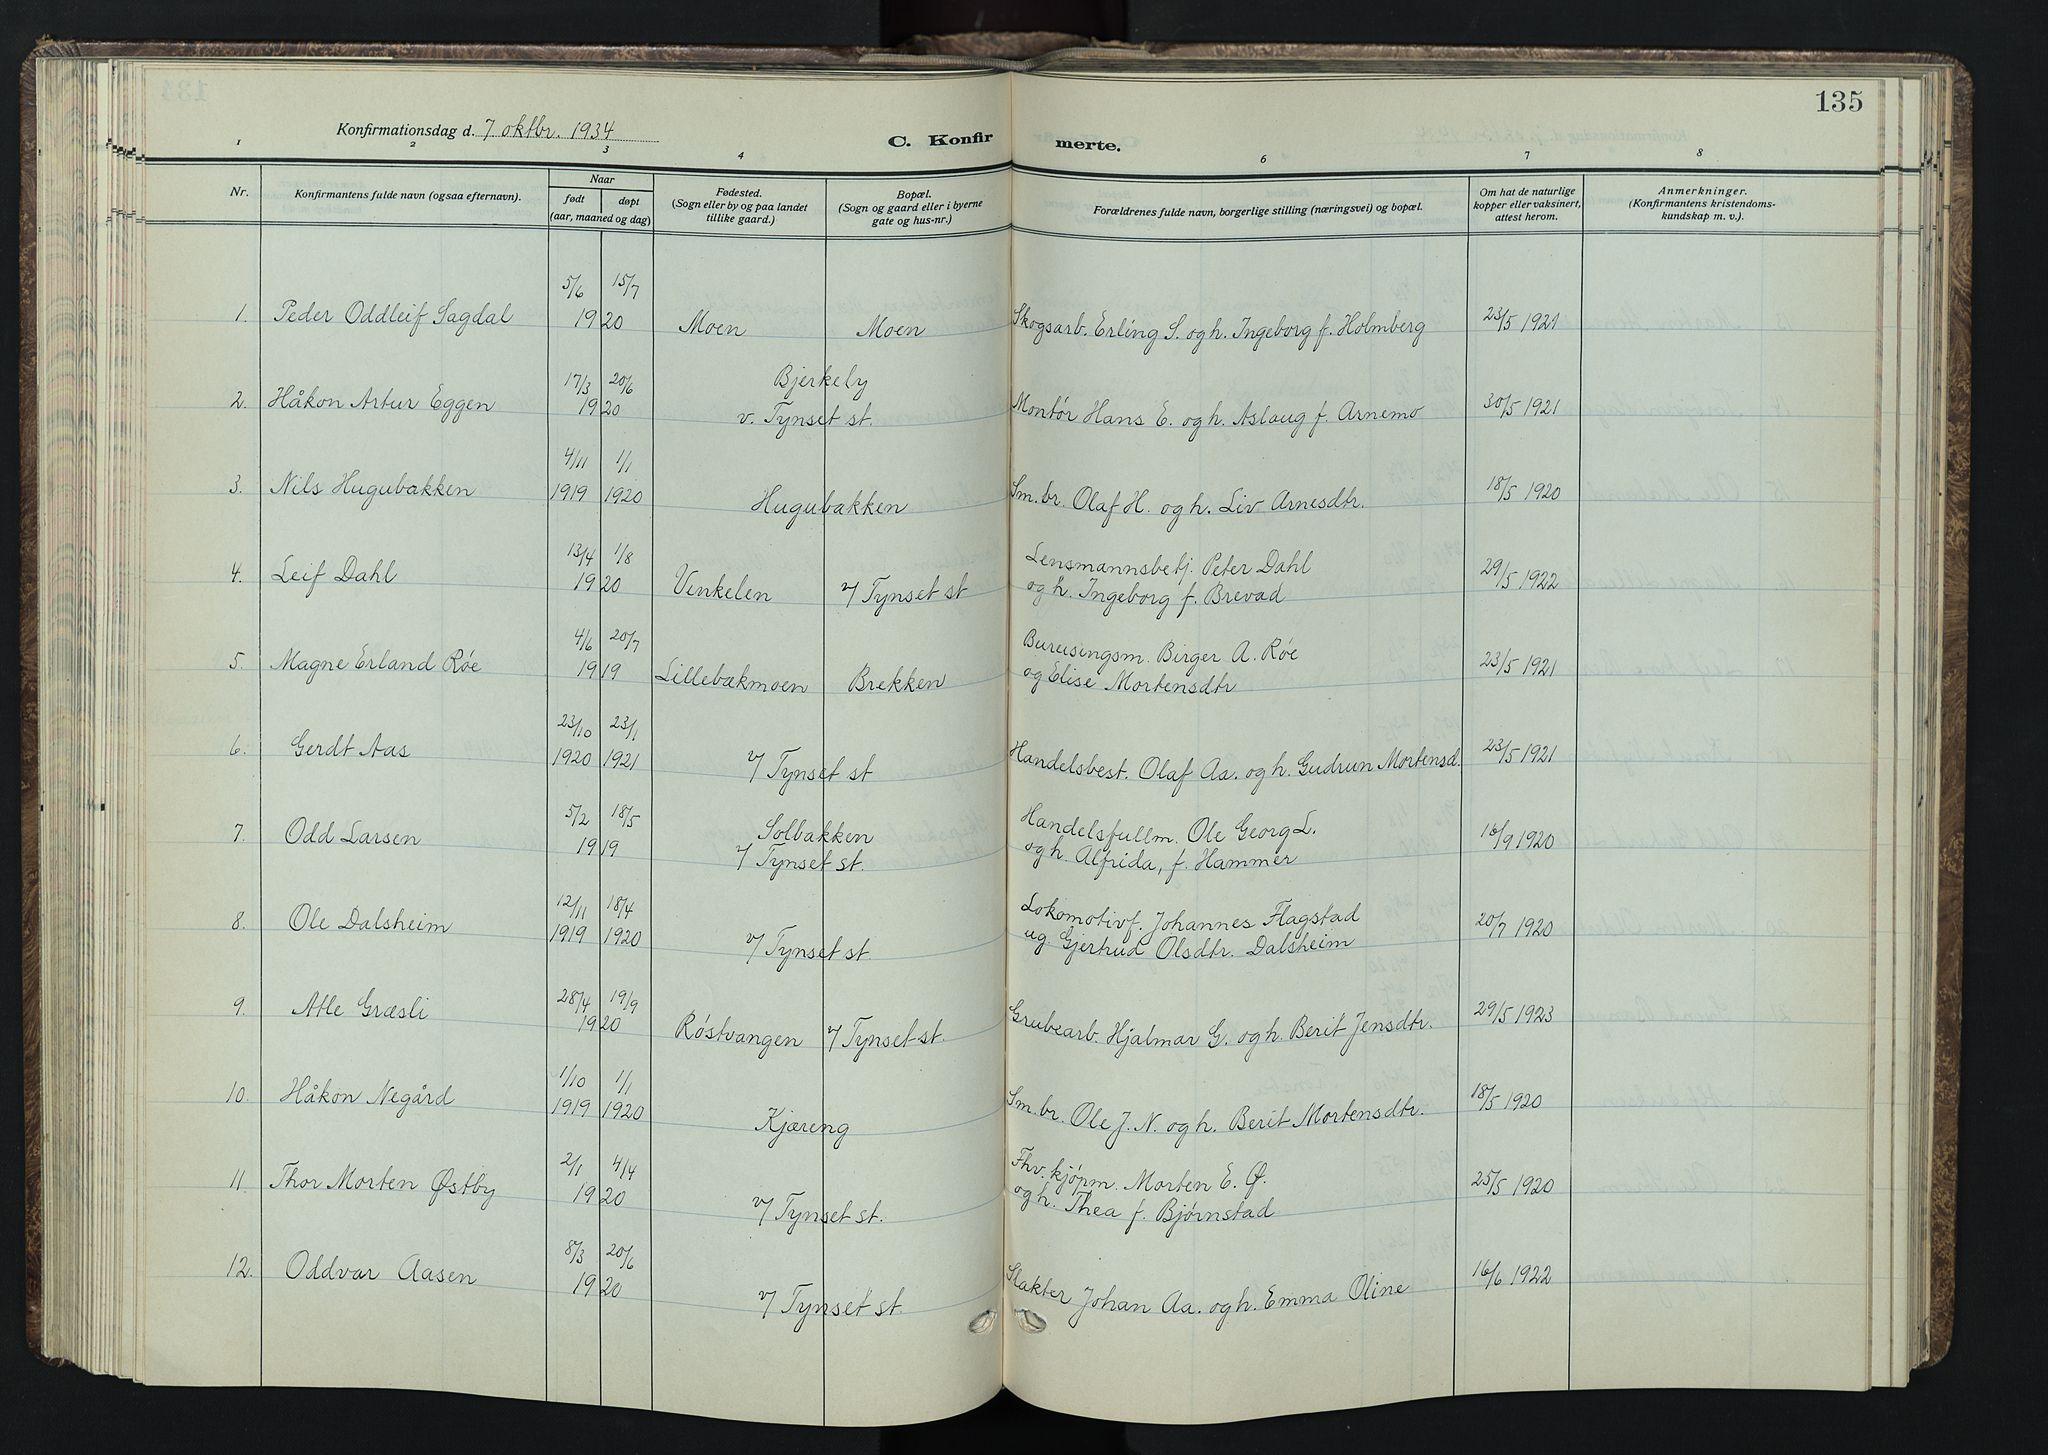 135
Konfirmationsdag d. 7 oktbr. 1934
C. Konfirmerte.
1 2 3 4 6 7 8
Nr. Konfirmantens fulde navn (ogsaa efternavn). Naar født døpt (aar, maaned og dag) Fødested. (Sogn eller by og paa landet tillike gaard.) Bopæl. (Sogn og gaard eller i byerne gate og hus-nr.) Forældrenes fulde navn, borgerlige stilling (næringsvei) og bopæl. Om hat de naturlige kopper eller vaksinert, attest herom. Anmerkninger. (Konfirmantens kristendoms-kundskap m. v.).
1. Peder Oddleif Sagdal 5/6 15/7 1920 Moen Moen Skogsarb. Erling S. og h. Ingeborg f. Holmberg 23/5 1921
2. Håkon Artur Eggen 17/3 20/6 1920 Bjerkely v. Tynset st. Montør Hans E. og h. Aslaug f. Arnemo 30/5 1921
3. Nils Hugubakken 4/11 1919 1/1 1920 Hugubakken Sm.br. Olaf H. og h. Liv Arnesdtr. 18/5 1920
4. Leif Dahl 13/4 1/8 1920 Venkelen v/ Tynset st Lensmannsbetj. Peter Dahl
og h. Ingeborg f. Brevad 29/5 1922
5. Magne Erland Røe 4/6 20/7 1919 Lillebækmoen Brekken Bureisingsm. Birger A. Røe
og Elise Mortensdtr 23/5 1921
6. Gerdt Aas 23/10 1920 23/1 1921 v/ Tynset st Handelsbest. Olaf Aa. og h. Gudrun Mortensd. 23/5 1921
7. Odd Larsen 5/2 18/5 1919 Solbakken
v/ Tynset st. Handelsfullm. Ole Georg L.
og h. Alfrida, f. Hammer 16/9 1920
8. Ole Dalsheim 12/11 1919 18/4 1920 v/ Tynset st. Lokomotivf. Johannes Flagstad
og Gjertrud Olsdtr. Dalsheim 20/7 1920
9. Atle Græsli 28/4 19/9 1920 Røstvangen v/ Tynset st. Grubearb. Hjalmar G. og h. Berit Jensdtr. 29/5 1923
10. Håkon Negård 1/10 1919 1/1 1920 Kjæreng Sm.br. Ole J. N. og h. Berit Mortensdtr. 18/5 1920
11. Thor Morten Østby 2/1 4/4 1920 v/ Tynset st. Fhv. kjøpm. Morten E. Ø.
og h. Thea f. Bjørnstad 25/5 1920
12. Oddvar Aasen 8/3 20/6 1920 v/ Tynset st. Slakter Johan Aa. og h. Emma Oline 16/6 1922